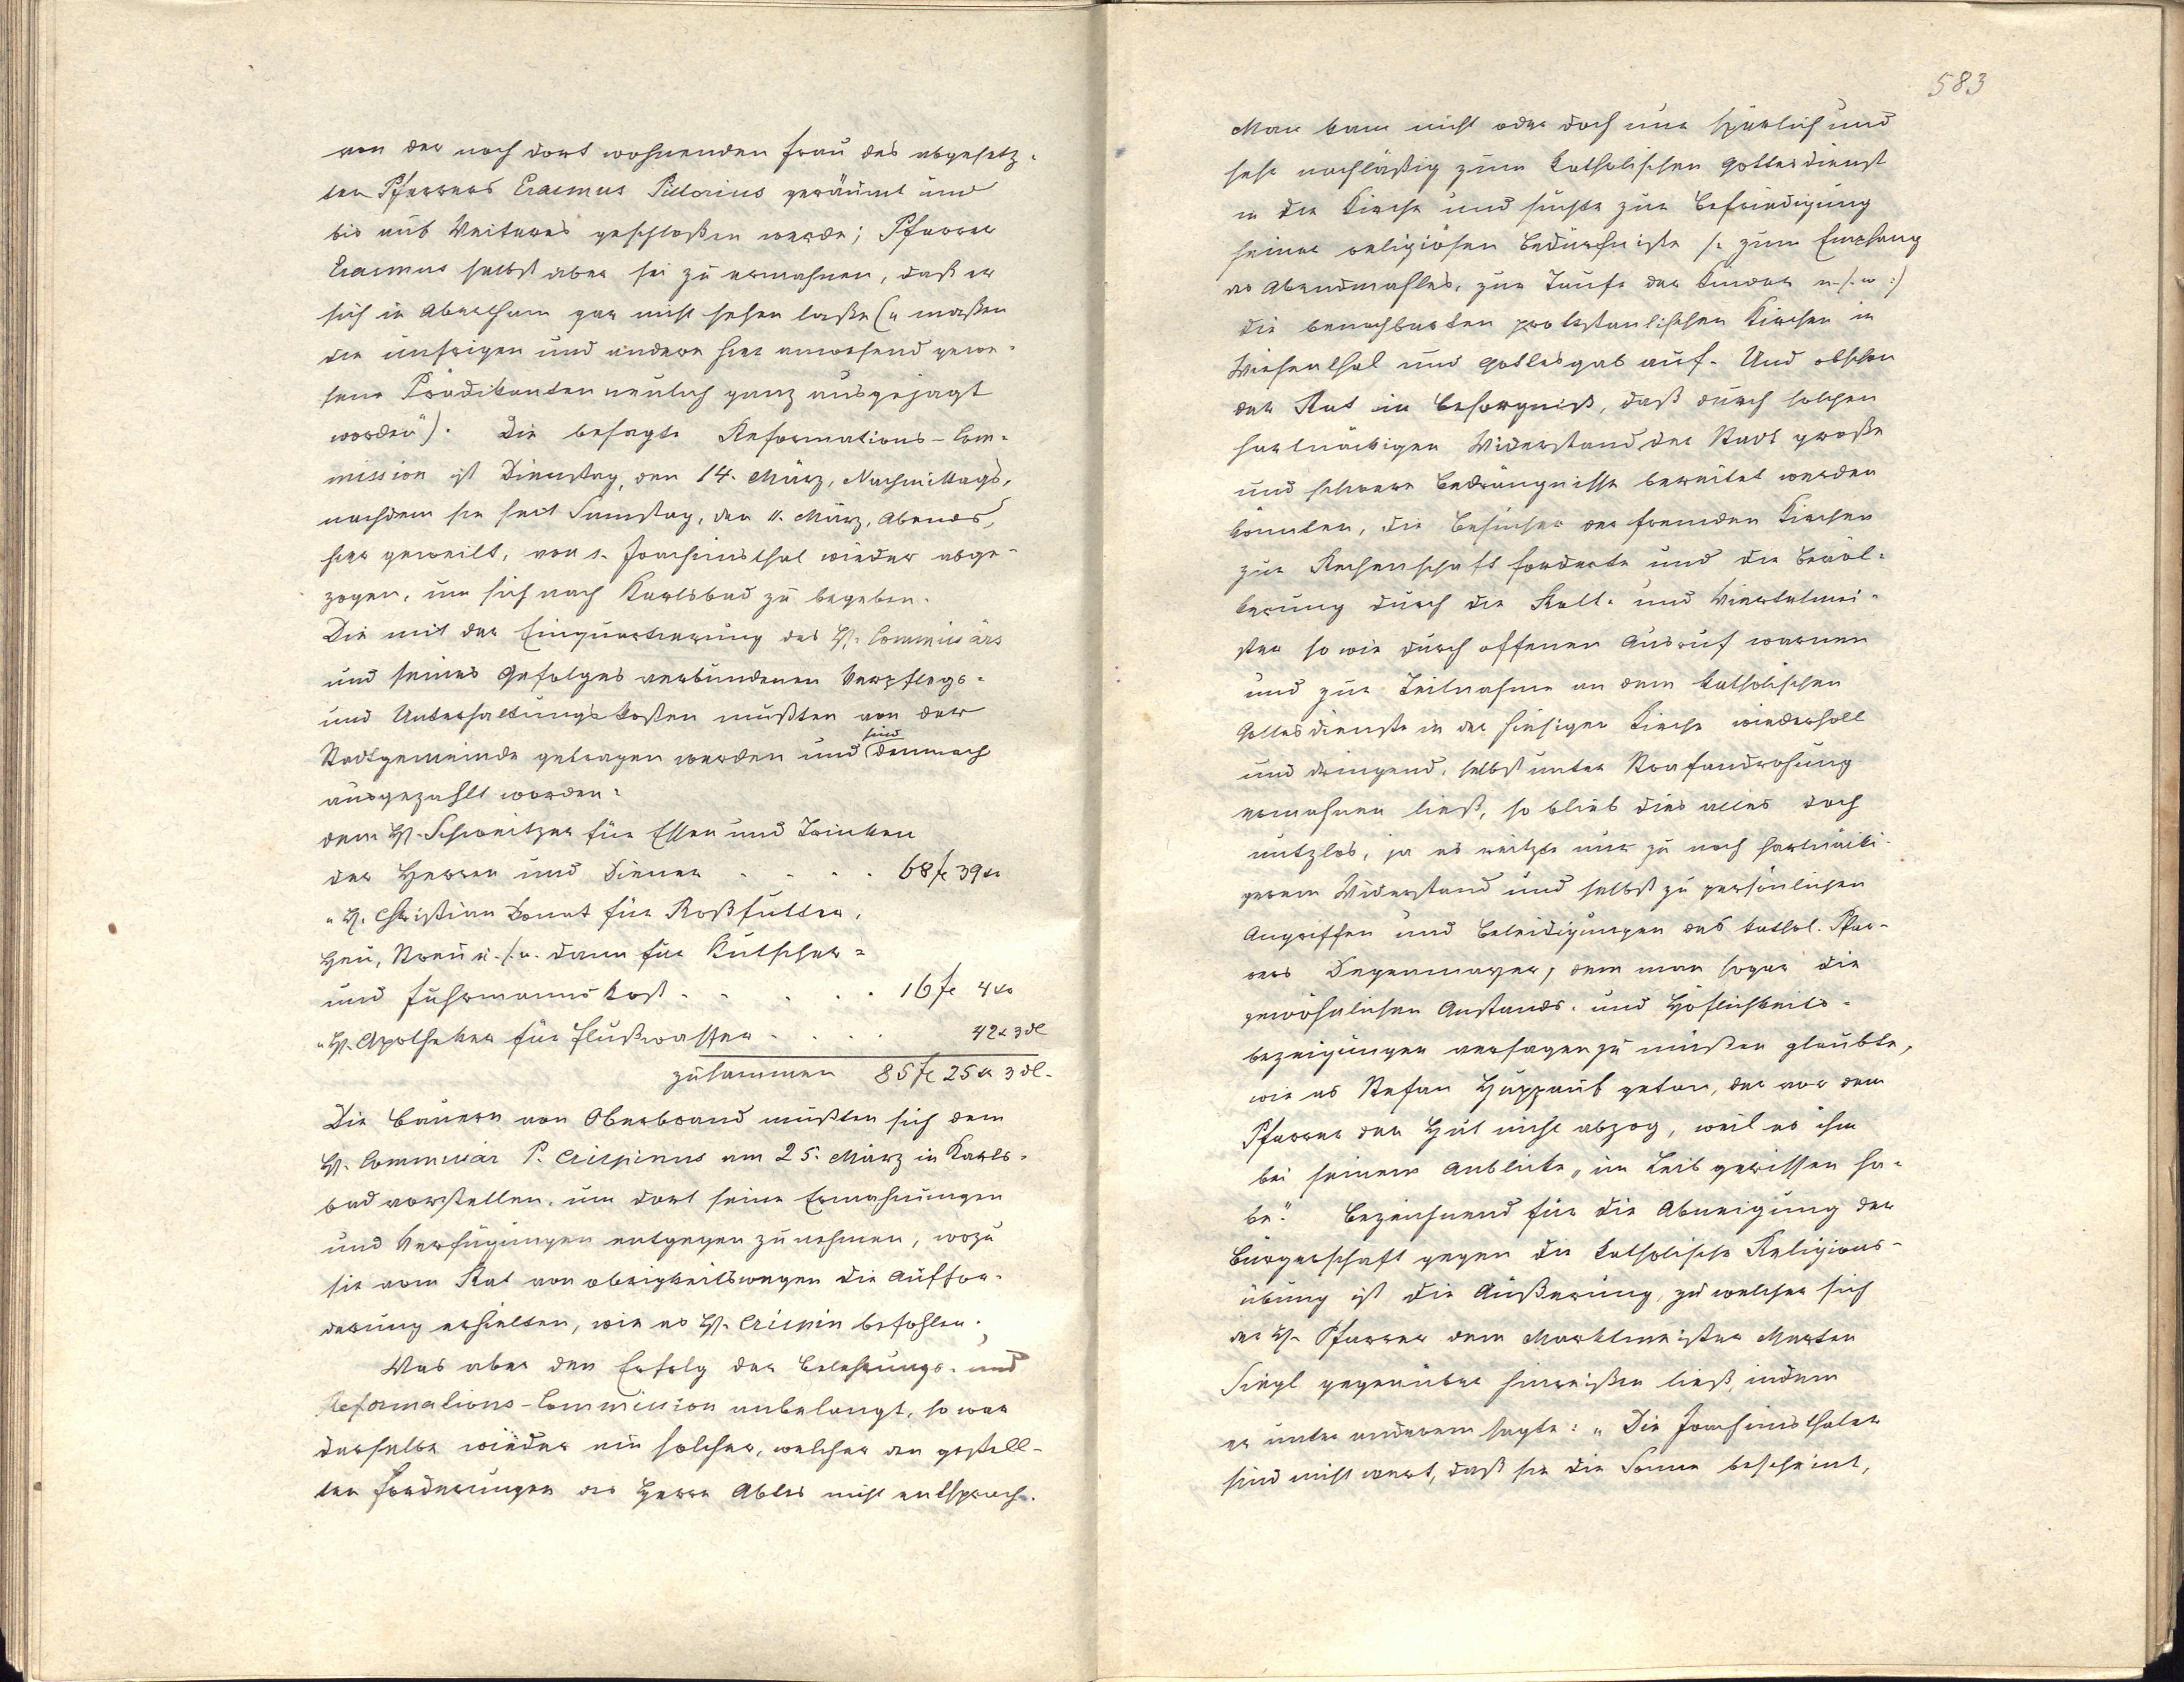 von der noch dort wohnenden Frau des abgesetz-
ten Pfarrers Erasmus Pistorius geräumt und
bis auf Weiteres geschloßen werde; Pfarrer
Erasmus selbst aber sei zu ermahnen, daß er
sich in Abertham gar nicht sehen laße („maßen
die unsrigen und andere hier anwesend gewe-
sene Prädikanten neulich ganz ausgejagt
worden"). Die besagte Reformations-Com-
mission ist Dienstag, den 14. März, Nachmittags,
nachdem sie seit Samstag, den 11. März, Abends,
hier geweilt, von s. Joachimsthal wieder abge-
zogen, um sich nach Karlsbad zu begeben.
Die mit der Einquartierung des H. Commissärs
und seines Gefolges verbundenen Verpflegs-
und Unterhaltungskosten mußten von der
Stadtgemeinde getragen werden und sind demnach
ausgezahlt worden:
dem H. Schweitzer für Essen und Trinken
der Herren und Diener . . . . 68 fl 39 kr
„ H. Christian Donat für Roßfutter,
Heu, Streu u.s.w. dann für Kutscher-
und Fuhrmannskost . . . . . 16 fl 4 kr
„ H. Apotheker für Flußwasser . . . . 42 kr 3 dl
zusammen 85 fl 25 kr 3 dl.
Die Bauern von Oberbrand mußten sich dem
H. Commissär P. Crispinus am 25. März in Karls-
bad vorstellen, um dort seine Ermahnungen
und Verfügungen entgegen zu nehmen, wozu
sie vom Rat von obrigkeitswegen die Auffor-
derung erhielten, wie es H. Crispin befohlen.
Was aber den Erfolg der Belehrungs- und
Reformations-Commission anbelangt, so war
derselbe wieder ein solcher, welcher den gestell-
ten Forderungen des Herrn Abtes nicht entsprach.
583
Man kam nicht oder doch nur spärlich und
sehr nachläßig zum katholischen Gottesdienst
in die Kirche und suchte zur Befriedigung
seiner religiösen Bedürfniße /: zum Empfang
des Abendmahles, zur Taufe der Kinder u.s.w :/
die benachbarten protestantischen Kirchen in
Wiesenthal und Gottesgab auf. Und obschon
der Rat in Besorgniß, daß durch solchen
hartnäckigen Widerstand der Stadt große
und schwere Bedrängnisse bereitet werden
könnten, die Besucher der fremden Kirchen
zur Rechenschaft forderte und die Bevöl-
kerung durch die Rott- und Viertelmei-
ster so wie durch offenen Ausruf warnen
und zur Teilnahme an dem katholischen
Gottesdienste in der hiesigen Kirche wiederholt
und dringend, selbst unter Strafandrohung
ermahnen ließ, so blieb dies alles doch
nutzlos, ja es reitzte nur zu noch hartnäcki-
gerem Widerstand und selbst zu persönlichen
Angriffen und Beleidigungen des kathol. Pfar-
rers Degenmayer, dem man sogar die
gewöhnlichen Anstands- und Höflichkeits-
bezeigungen versagen zu müßen glaubte,
wie es Stefan Huppauf getan, der vor dem
Pfarrer den Hut nicht abzog, weil es ihn
bei seinem Anblicke „im Leib gerissen ha-
be". Bezeichnend für die Abneigung der
Bürgerschaft gegen die katholische Religions-
übung ist die Äußerung, zu welcher sich
der H. Pfarrer dem Marktmeister Merten
Siegl gegenüber hinreißen ließ, indem
er unter anderem sagte: „Die Joachimsthaler
sind nicht wert, daß sie die Sonne bescheint,